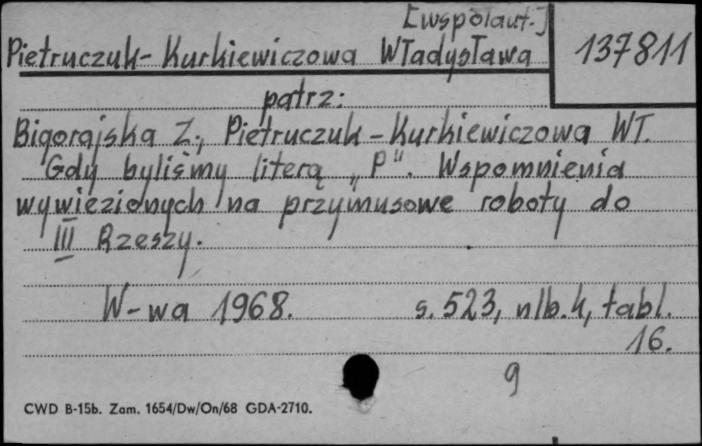 [współaut.]
Pietruczuk-Kurkiewiczowa Władysława 137811
patrz:
Bigorajska Z., Pietruczuk-Kurkiewiczowa Wł.
Gdy byliśmy literą „P". Wspomnienia
wywiezionych na przymusowe roboty do
III Rzeszy.
W-wa 1968. s. 523, nlb. 4, tabl.
16.
9
CWD B-15b. Zam. 1654/Dw/On/68 GDA-2710.